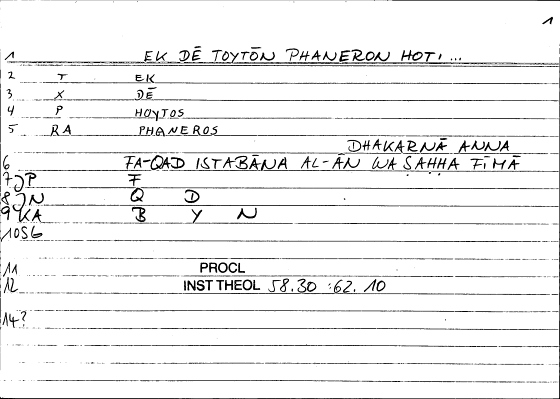 1
1 EK DĒ TOYTŌN PHANERON HOTI ...
2 T EK
3 X DĒ
4 P HOYTOS
5 RA PHANEROS
DHAKARNĀ ANNA
6 FA-QAD ISTABĀNA AL-ĀN WA ṢAḤḤA FĪMĀ
7 JP F
8 JN Q D
9 KA B Y N
10 S6
11 PROCL
12 INST THEOL 58.30 :62.10
14?